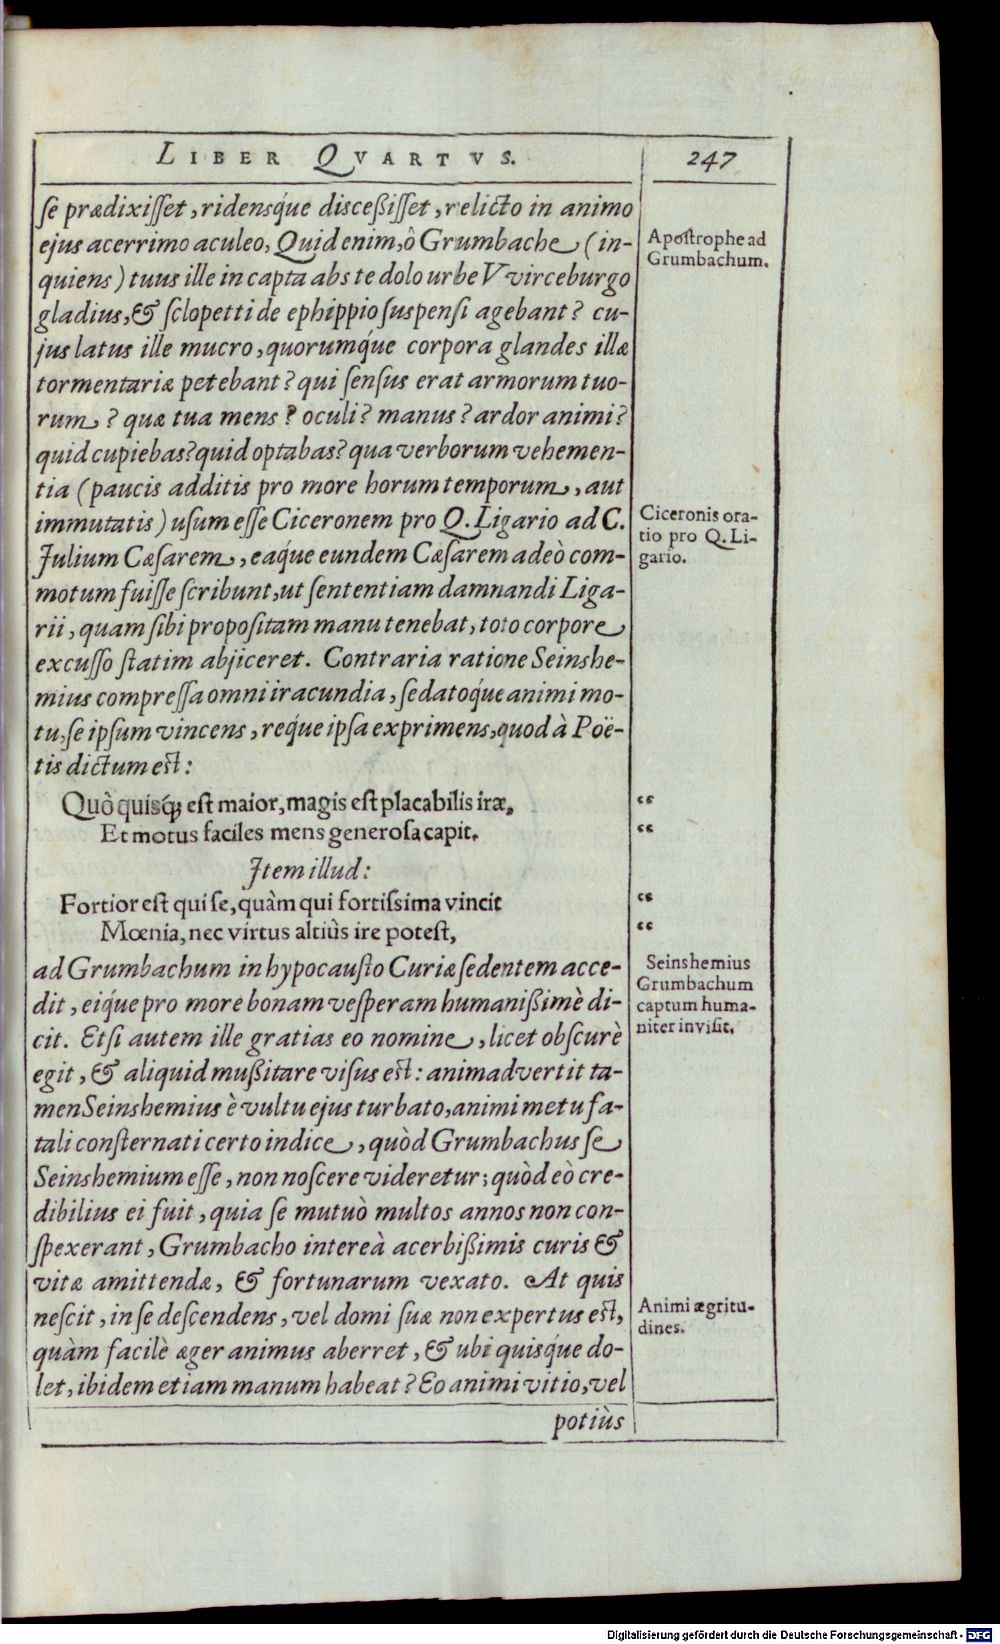 LIBER QVARTVS.
247
ſe prædixiſſet, ridensq́ue disceßiſſet, relicto in animo
ejus acerrimo aculeo, Quid enim, ô Grumbache (in-
quiens) tuus ille in capta abs te dolo urbe VVirceburgo
gladius, & ſclopetti de ephippio ſuspenſi agebant? cu-
jus latus ille mucro, quorumq́ue corpora glandes illæ
tormentariæ petebant? qui ſenſus erat armorum tuo-
rum? quæ tua mens? oculi? manus? ardor animi?
quid cupiebas? quid optabas? qua verborum vehemen-
tia (paucis additis pro more horum temporum, aut
immutatis) uſum eſſe Ciceronem pro Q. Ligario ad C.
Julium Cæſarem, eaq́ue eundem Cæſarem adeò com-
motum fuiſſe ſcribunt, ut ſententiam damnandi Liga-
rii, quam ſibi propoſitam manu tenebat, toto corpore
excuſſo ſtatim abjiceret. Contraria ratione Seinshe-
mius compreſſa omni iracundia, ſedatoq́ue animi mo-
tu, ſe ipſum vincens, req́ue ipſa exprimens, quod à Poë-
tis dictum eſt:
Quò quisq́; eſt maior, magis eſt placabilis iræ,
Et motus faciles mens generoſa capit.
Item illud:
Fortior eſt qui ſe, quàm qui fortiſsima vincit
Mœnia, nec virtus altiùs ire poteſt,
ad Grumbachum in hypocauſto Curiæ ſedentem acce-
dit, eiq́ue pro more bonam veſperam humanißimè di-
cit. Etſi autem ille gratias eo nomine, licet obſcurè
egit, & aliquid mußitare viſus eſt: animadvertit ta-
men Seinshemius è vultu ejus turbato, animi metu fa-
tali conſternati certo indice, quòd Grumbachus ſe
Seinshemium eſſe, non noſcere videretur; quòd eò cre-
dibilius ei fuit, quia ſe mutuò multos annos non con-
ſpexerant, Grumbacho intereà acerbißimis curis &
vitæ amittendæ, & fortunarum vexato. At quis
neſcit, in ſe deſcendens, vel domi ſuæ non expertus eſt,
quàm facilè æger animus aberret, & ubi quisq́ue do-
let, ibidem etiam manum habeat? Eo animi vitio, vel
potiùs
Apoſtrophe ad
Grumbachum.
Ciceronis ora-
tio pro Q. Li-
gario.
“
“
“
“
Seinshemius
Grumbachum
captum huma-
niter inviſit.
Animi ægritu-
dines.
Digitalisierung gefördert durch die Deutsche Forschungsgemeinschaft - DFG